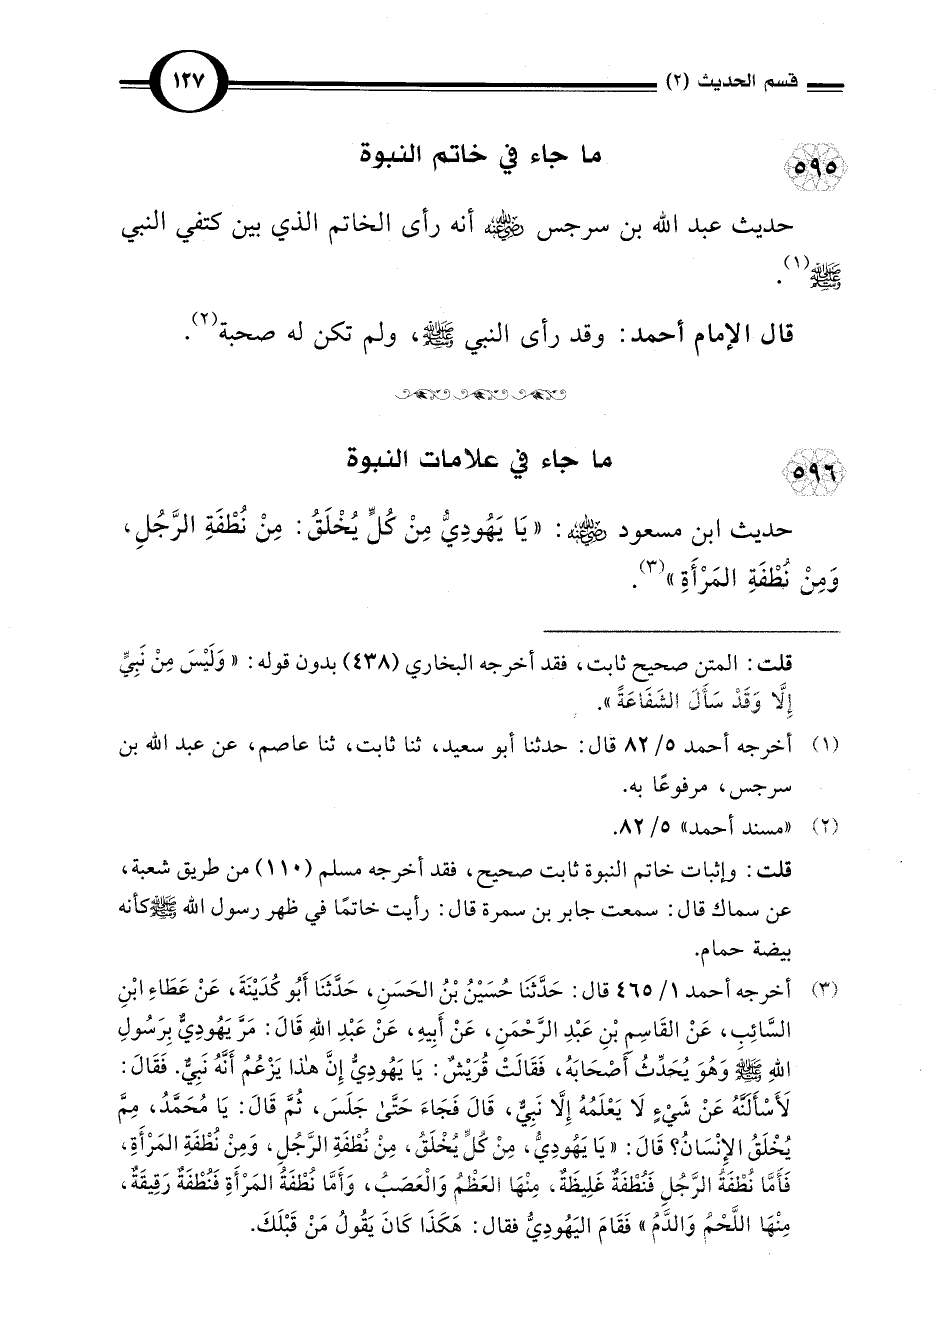 قسم الحديث (٢)
١٢٧
٥٩٥
ما جاء في خاتم النبوة
حديث عبد الله بن سرجس رضي الله عنه أنه رأى الخاتم الذي بين كتفي النبي
ﷺ(١).
قال الإمام أحمد: وقد رأى النبي ﷺ، ولم تكن له صحبة(٢).
٥٩٦
ما جاء في علامات النبوة
حديث ابن مسعود رضي الله عنه: «يَا يَهُودِيُّ مِنْ كُلٍّ يُخْلَقُ: مِنْ نُطْفَةِ الرَّجُلِ،
وَمِنْ نُطْفَةِ المَرْأَةِ»(٣).
قلت: المتن صحيح ثابت، فقد أخرجه البخاري (٤٣٨) بدون قوله: «وَلَيْسَ مِنْ نَبِيٍّ
إِلَّا وَقَدْ سَأَلَ الشَّفَاعَةَ».
(١) أخرجه أحمد ٥/ ٨٢ قال: حدثنا أبو سعيد، ثنا ثابت، ثنا عاصم، عن عبد الله بن
سرجس، مرفوعًا به.
(٢) «مسند أحمد» ٥/ ٨٢.
قلت: وإثبات خاتم النبوة ثابت صحيح، فقد أخرجه مسلم (١١٠) من طريق شعبة،
عن سماك قال: سمعت جابر بن سمرة قال: رأيت خاتمًا في ظهر رسول الله ﷺ كأنه
بيضة حمام.
(٣) أخرجه أحمد ١/ ٤٦٥ قال: حَدَّثَنَا حُسَيْنُ بْنُ الحَسَنِ، حَدَّثَنَا أَبُو كُدَيْنَةَ، عَنْ عَطَاءِ ابْنِ
السَّائِبِ، عَنْ القَاسِمِ بْنِ عَبْدِ الرَّحْمَنِ، عَنْ أَبِيهِ، عَنْ عَبْدِ اللهِ قَالَ: مَرَّ يَهُودِيٌّ بِرَسُولِ
اللهِ ﷺ وَهُوَ يُحَدِّثُ أَصْحَابَهُ، فَقَالَتْ قُرَيْشٌ: يَا يَهُودِيُّ إِنَّ هٰذا يَزْعُمُ أَنَّهُ نَبِيٌّ. فَقَالَ:
لَأَسْأَلَنَّهُ عَنْ شَيْءٍ لَا يَعْلَمُهُ إِلَّا نَبِيٌّ، قَالَ فَجَاءَ حَتَّىٰ جَلَسَ، ثُمَّ قَالَ: يَا مُحَمَّدُ، مِمَّ
يُخْلَقُ الإِنْسَانُ؟ قَالَ: «يَا يَهُودِيُّ، مِنْ كُلٍّ يُخْلَقُ، مِنْ نُطْفَةِ الرَّجُلِ، وَمِنْ نُطْفَةِ المَرْأَةِ،
فَأَمَّا نُطْفَةُ الرَّجُلِ فَنُطْفَةٌ غَلِيظَةٌ، مِنْهَا العَظْمُ وَالْعَصَبُ، وَأَمَّا نُطْفَةُ المَرْأَةِ فَنُطْفَةٌ رَقِيقَةٌ،
مِنْهَا اللَّحْمُ وَالدَّمُ» فَقَامَ اليَهُودِيُّ فقال: هَكَذَا كَانَ يَقُولُ مَنْ قَبْلَكَ.